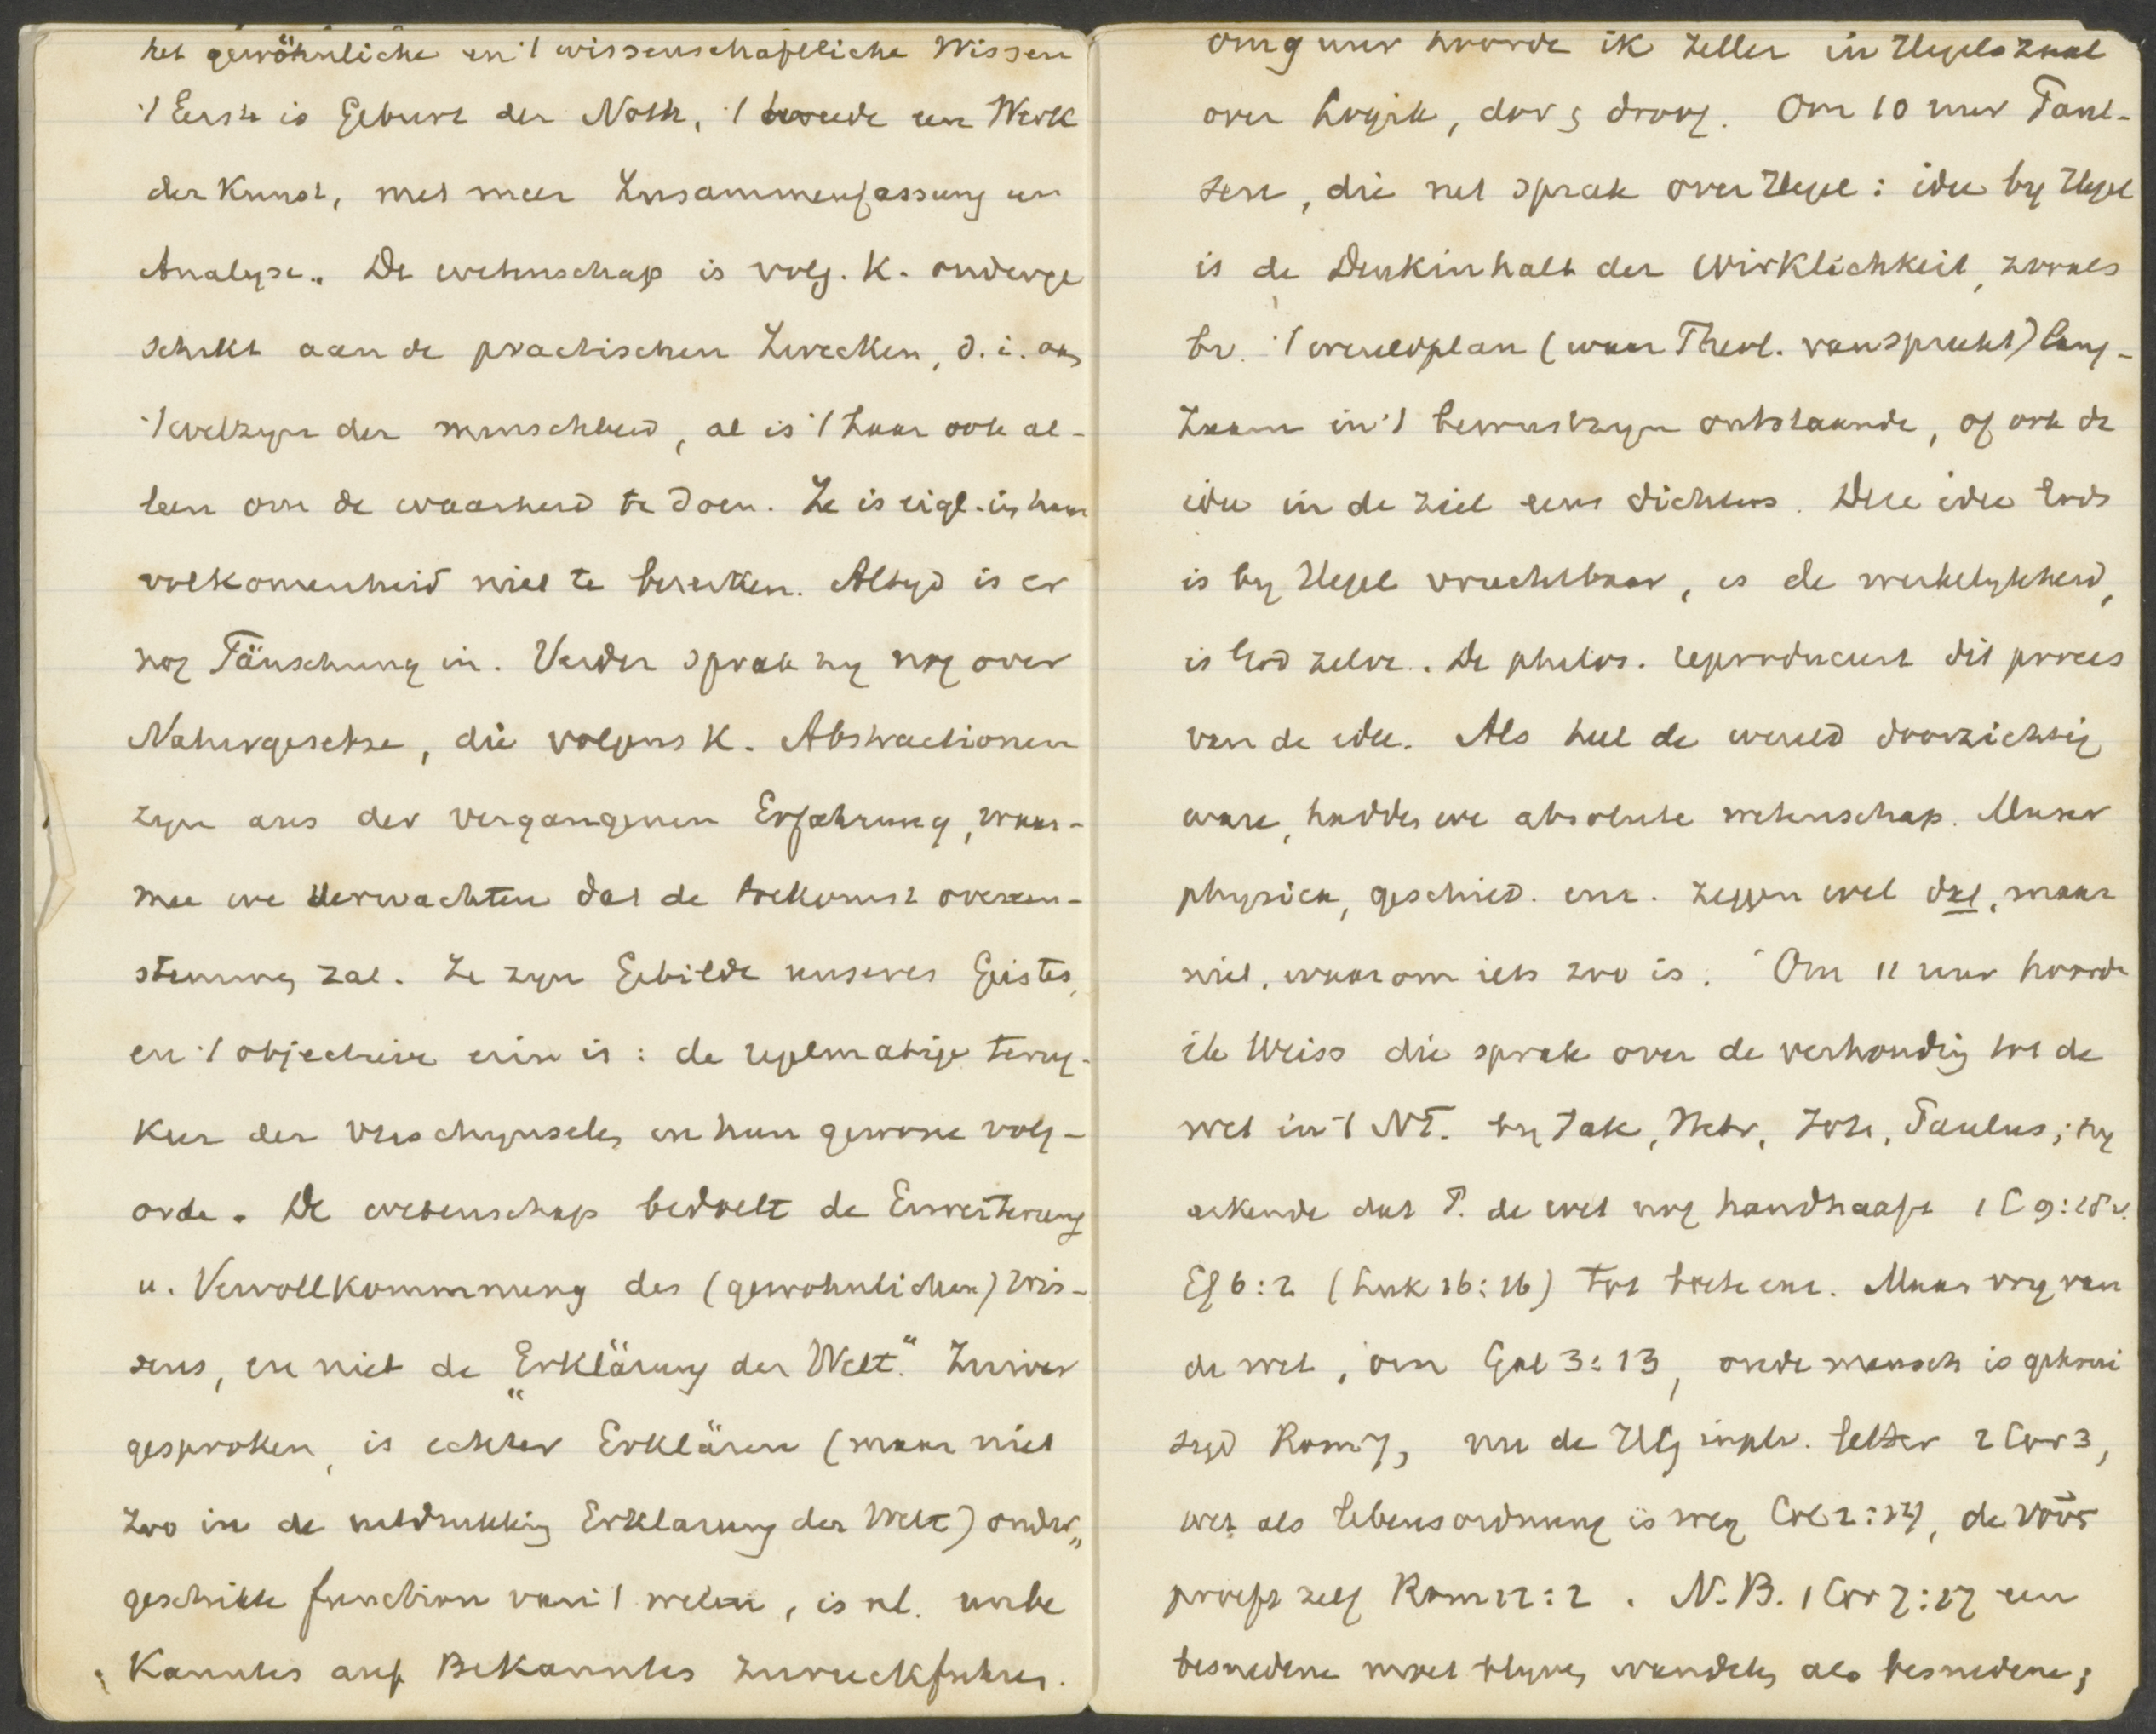 het gewöhnliche en 't wissenschaftliche Wissen
't Eerste is Geburt der Noth, 't tweede een Werk
der Kunst, met meer Zusammenfassung en
Analyse. De wetenschap is volg. K. onderge
schikt aan de practischen Zwecken, d.i. aan
't welzyn der menschheid, al is 't haar ook al-
leen om de waarheid te doen. Ze is eigl. in haar
volkomenheid niet te bereiken. Altyd is er
nog Täuschung in. Verder sprak hy nog over
Naturgesetze, die volgens K. Abstractionen
zyn aus der vergangenen Erfahrung, waar-
mee we verwachten dat de toekomst overeen-
stemmen zal. Ze zyn Gebilde unseres Geistes,
en 't objectieve erin is: de regelmatige terug-
keer der verschynselen en hun gewone volg-
orde. De wetenschap bedoelt de Erweiterung
u. Vervollkommnung des (gewohnlichen) Wis-
sens, en niet de „Erklärung der Welt." Zuiver
gesproken, is echter Erklären (maar niet
zoo in de uitdrukking Erklarung der Welt) onder„
geschikte function van 't weten, is nl. unbe
kanntes auf Bekanntes zuruckfuhren.
Om 9 uur hoorde ik Zeller in Hegels zaal
over Logik, dor en droog. Om 10 uur Paul-
sen, die net sprak over Hegel: idee by Hegel
is de Denkinhalt der Wirklichkeit, zooals
bv. 't wereldplan (waar Theol. van spreekt) lang-
zaam in 't bewustzyn ontstaande, of ook de
idee in de ziel eens dichters. Deze idee Gods
is by Hegel vruchtbaar, is de werkelykheid,
is God zelve. De philos. reproduceert dit proces
van de idee. Als heel de wereld doorzichtig
ware, hadden we absolute wetenschap. Maar
physica, geschied. enz. zeggen wel dat, maar
niet, waarom iets zoo is. Om 11 uur hoorde
ik Weiss die sprak over de verhouding tot de
wet in 't NT. by Jak, Hebr, Joh, Paulus; hy
erkende dat P. de wet nog handhaaft 1 C 9:
Ef 6:2 (Luk 16:16) tot enz. Maar vry van
de wet, om Gal 3:13, oude mensch is gekrui
zigd Rom 7, nu de HG inpl. letter 2 Cor 3,
wet als Lebensordnung is weg Col 2: , de νοῦς
proeft zelf Rom 12:2. N.B. 1 Cor 7: een
besnedene moet blyven wandelen als besnedene;